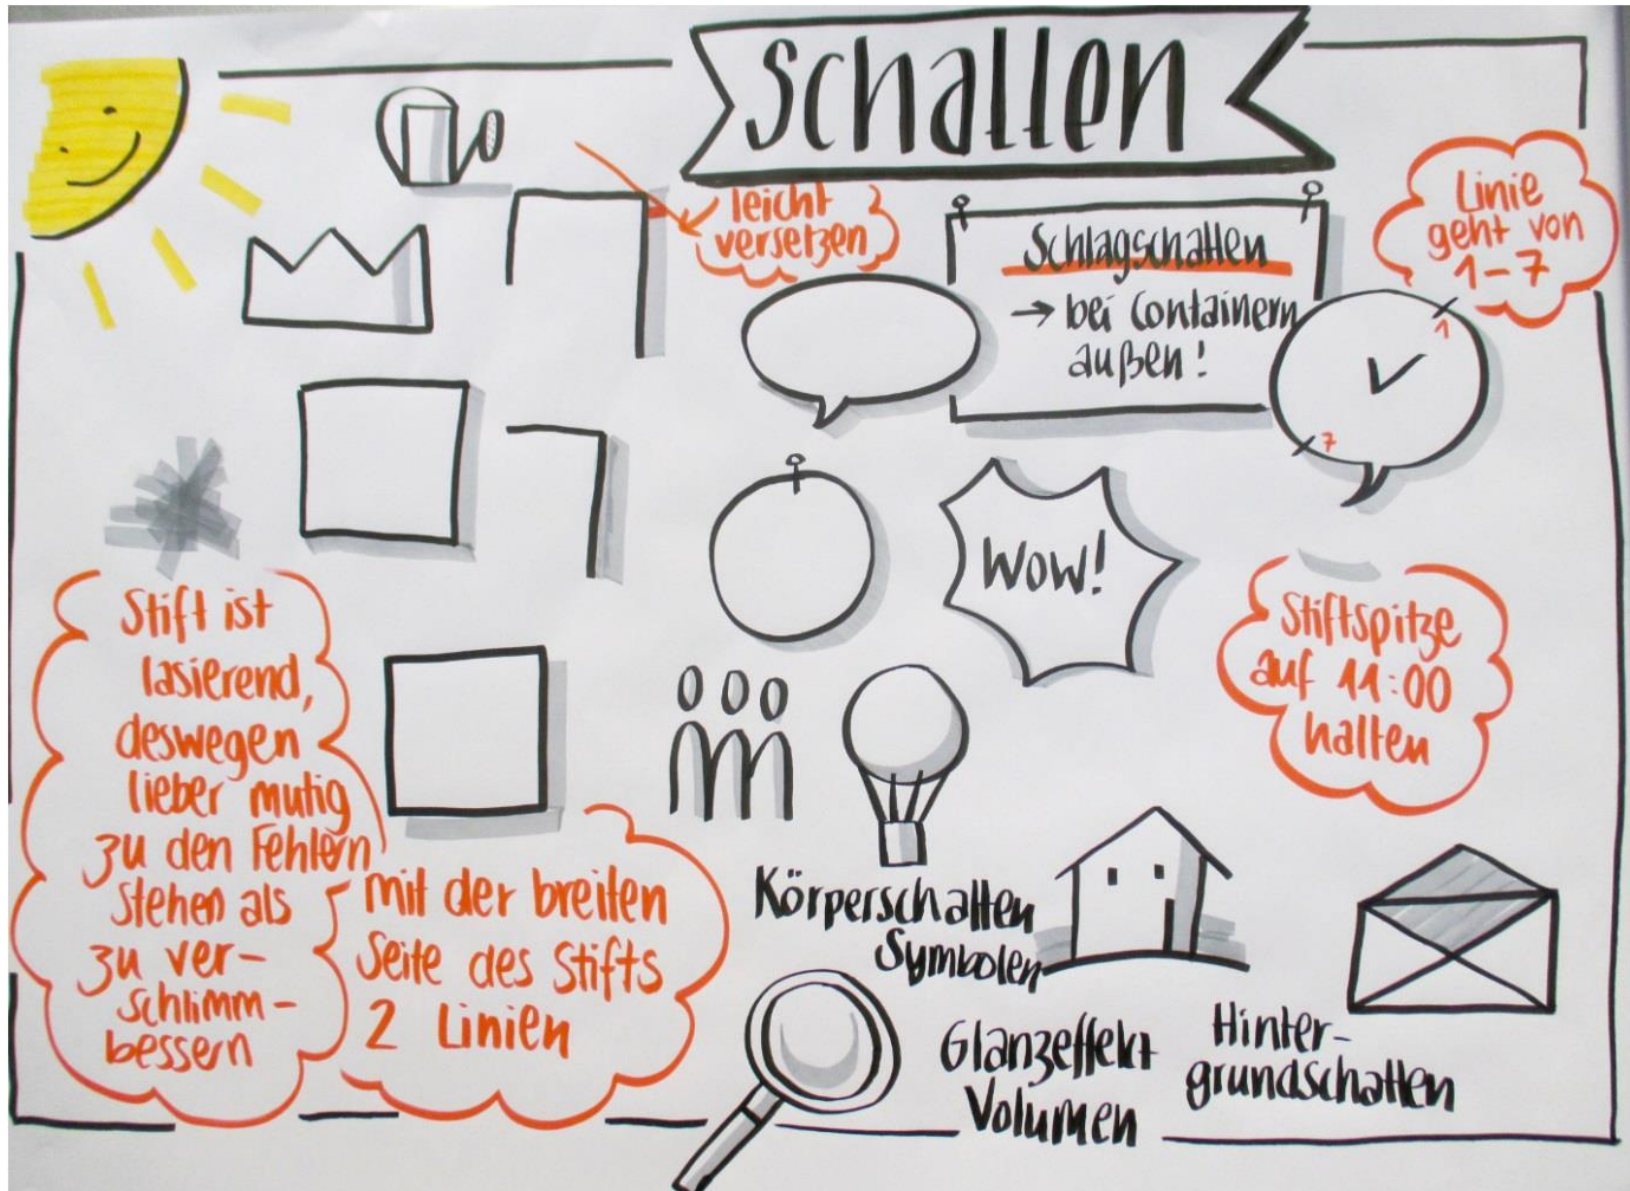 Schatten
leicht
versetzen
Schlagschatten
→ bei Containern
außen!
Linie
geht von
1-7
1
7
Wow!
Stift ist
lasierend,
deswegen
lieber mutig
zu den Fehlern
stehen als
zu ver-
schlimm-
bessern
mit der breiten
Seite des Stifts
2 Linien
Stiftspitze
auf 11:00
halten
Körperschatten
Symbolen
Glanzeffekt
Volumen
Hinter-
grundschatten